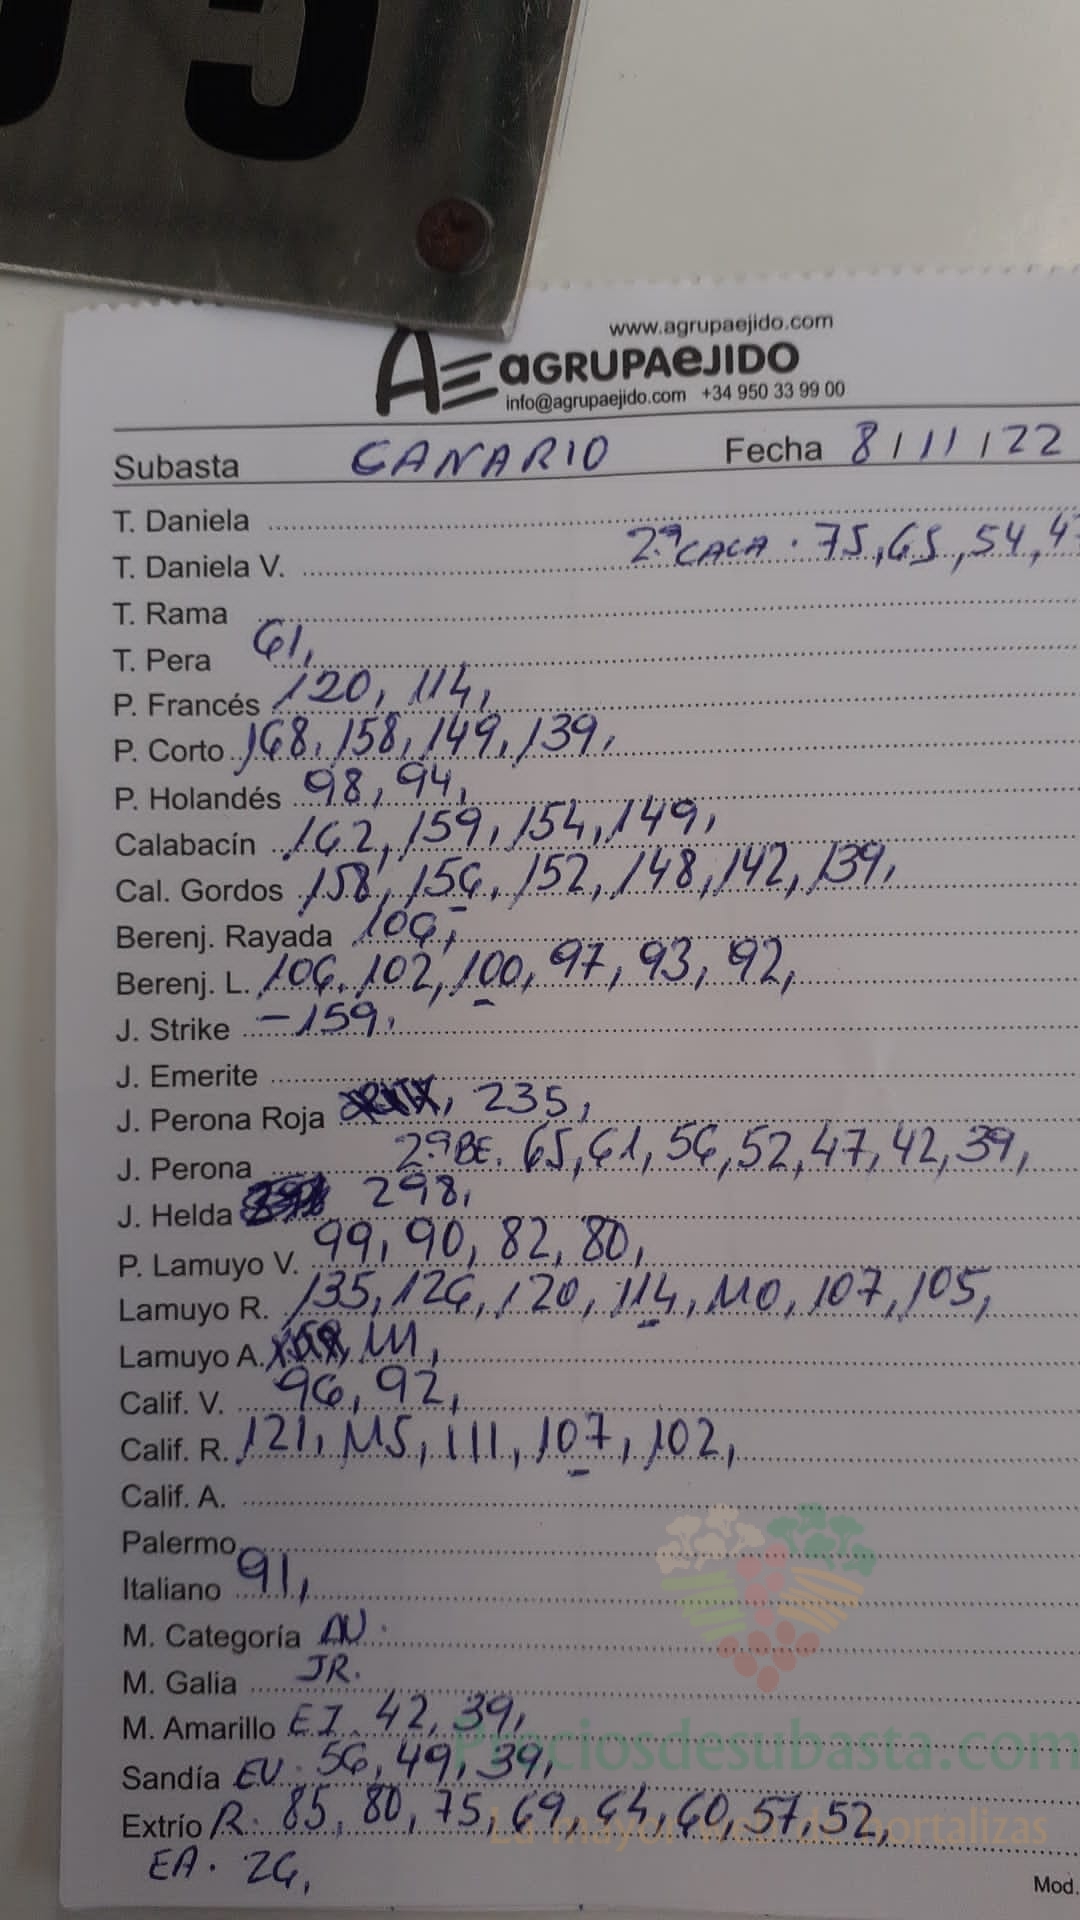 www.agrupaejido.com
AE aGRUPAeJIDO
info@agrupaejido.com +34 950 33 99 00
Subasta CANARIO Fecha 8/11/22
T. Daniela
2ª CACA. 75, 65, 54, 4
T. Daniela V.
T. Rama
T. Pera 61,
P. Francés 120, 114,
P. Corto 168, 158, 149, 139,
P. Holandés 98, 94,
Calabacín 162, 159, 154, 149,
Cal. Gordos 158, 156, 152, 148, 142, 139,
Berenj. Rayada 106,
Berenj. L. 106, 102, 100, 97, 93, 92,
J. Strike -159,
J. Emerite
J. Perona Roja , 235,
J. Perona 2ª BE. 65, 61, 56, 52, 47, 42, 39,
J. Helda 298,
P. Lamuyo V. 99, 90, 82, 80,
Lamuyo R. 135, 126, 120, 114, 110, 107, 105,
Lamuyo A. 111,
Calif. V. 96, 92,
Calif. R. 121, 115, 111, 107, 102,
Calif. A.
Palermo
Italiano 91,
M. Categoría
M. Galia JR.
M. Amarillo EI. 42, 39,
Sandía EV. 56, 49, 39,
Extrío R. 85, 80, 75, 69, 64, 60, 57, 52,
EA. 26,
Mod.
Preciosdesubasta.com
La mayor web de hortalizas